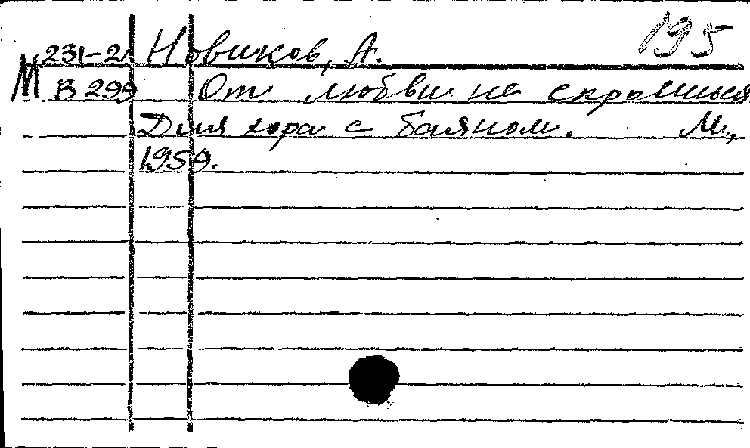 195
М 231-2 Новиков, А.
В 299 От любви не скроешься
Для хора с баяном. М.,
1959.